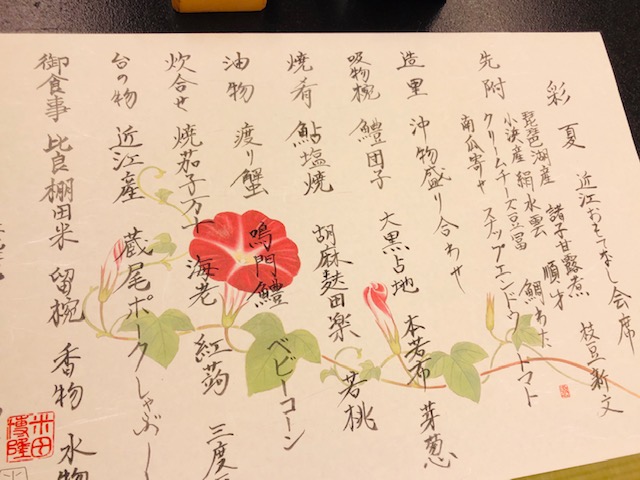 彩夏 近江おもてなし会席
先附
琵琶湖産 諸子甘露煮 枝豆新文
小浜産絹水雲 順才 鯛わた
クリームチーズ豆冨 トマト
南瓜寄せ スナップエンドウ
造里 沖物盛り合わせ
吸物椀 鱧団子 大黒占地 本若布 芽葱
焼肴 鮎塩焼 胡麻麩田楽 若桃
油物 渡り蟹 鳴門鱧 ベビーコーン
炊合せ 焼茄子万十 海老 紅蒟 三度
台の物 近江産 蔵尾ポークしゃぶし
御食事 比良棚田米 留椀 香物 水物